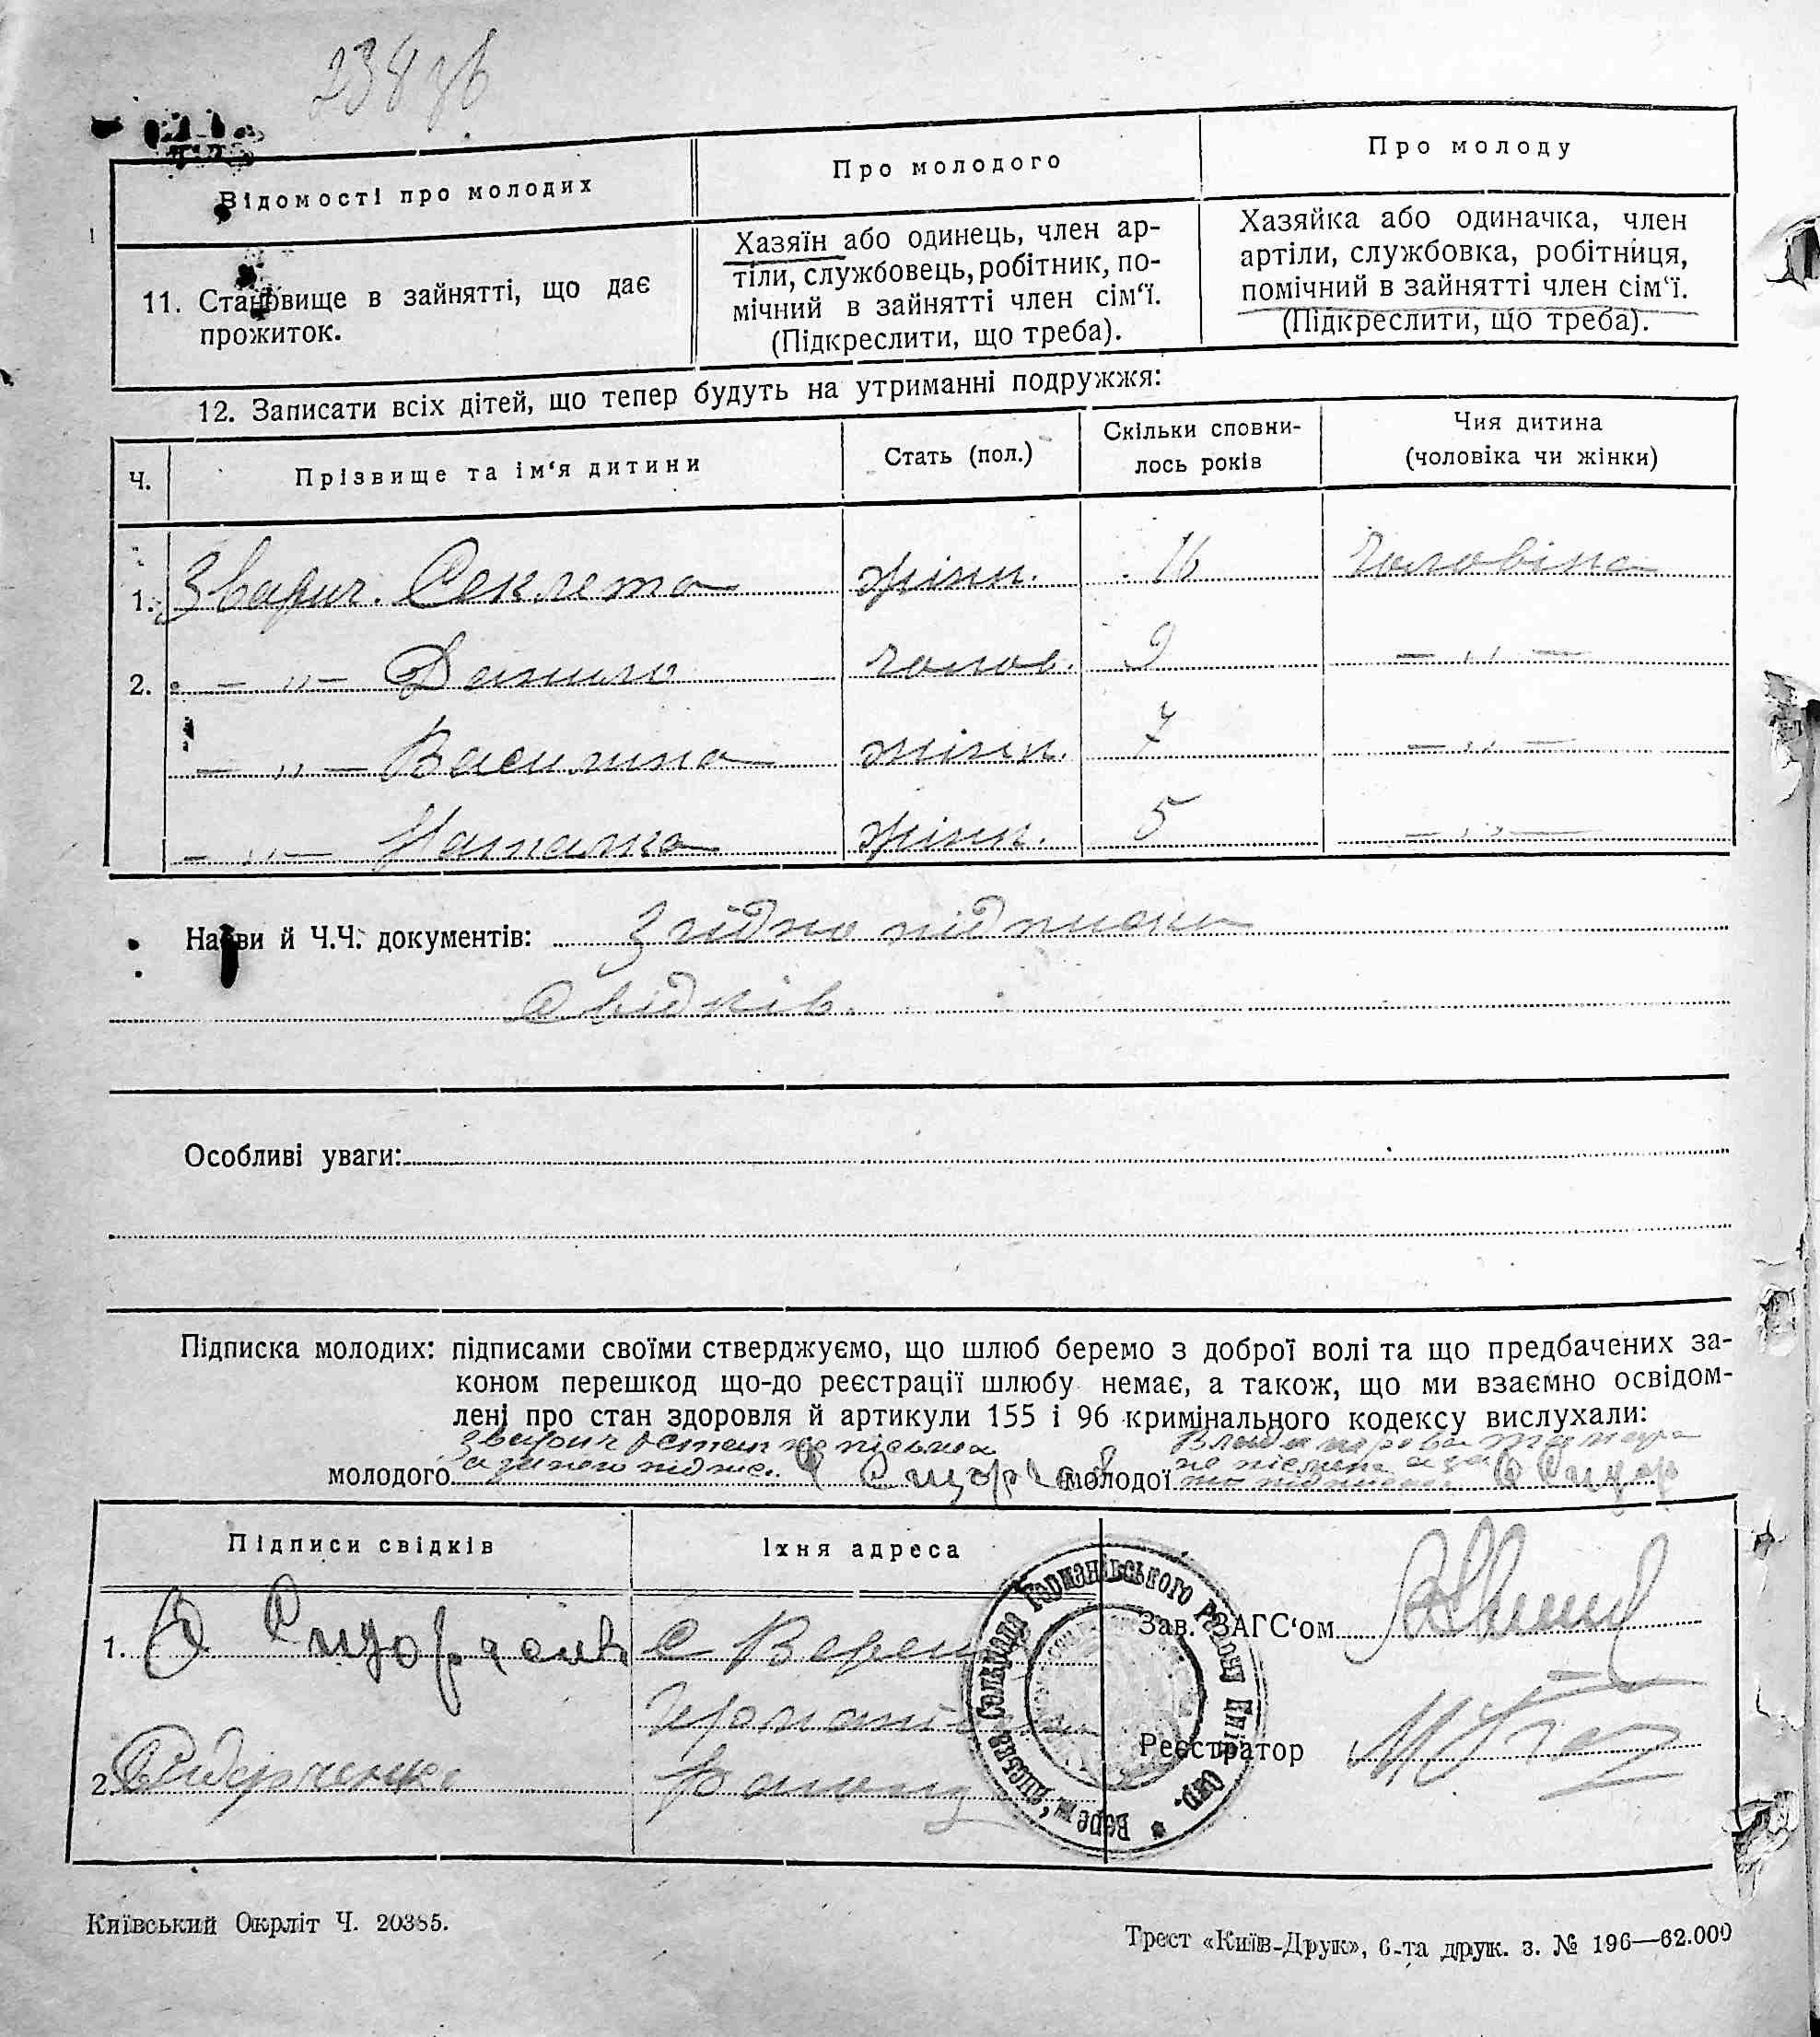 234 зв
Відомості про молодих
Про молодого
Про молоду
11. Становище в зайнятті, що дає
прожиток.
Хазяїн або одинець, член ар-
тіли, службовець, робітник, по-
мічний в зайнятті член сім'ї.
(Підкреслити, що треба).
Хазяйка або одиначка, член
артіли, службовка, робітниця,
помічний в зайнятті член сім'ї.
(Підкреслити, що треба).
12. Записати всіх дітей, що тепер будуть на утриманні подружжя:
Ч. Прізвище та ім'я дитини Стать (пол.) Скільки сповни-
лось років Чия дитина
(чоловіка чи жінки)
1. Зварич. Секлета жіноч. 16 Чоловіка
2. — „ — Данило чолов. 9 — „ —
— „ — Василина жіноч. 7 — „ —
— „ — Наталка жіноч. 5 — „ —
Назви й Ч.Ч. документів: Згідно підписки
свідків.
Особливі уваги:
Підписка молодих: підписами своїми стверджуємо, що шлюб беремо з доброї волі та що предбачених за-
коном перешкод що-до реєстрації шлюбу немає, а також, що ми взаємно освідом-
лені про стан здоровля й артикули 155 і 96 кримінального кодексу вислухали:
Зварич Остап не письмен
а за нього підпис.
молодого
молодої
Підписи свідків
Їхня адреса
1. О Сидорченк с Верем
2. Сидорченко району
Зав. ЗАГС'ом
Реєстратор
Верем'янська Сельрада Германівського Району Київ. Окр.
Київський Окрліт Ч. 20385.
Трест «Київ-Друк», 6-та друк. з. № 196—62.000